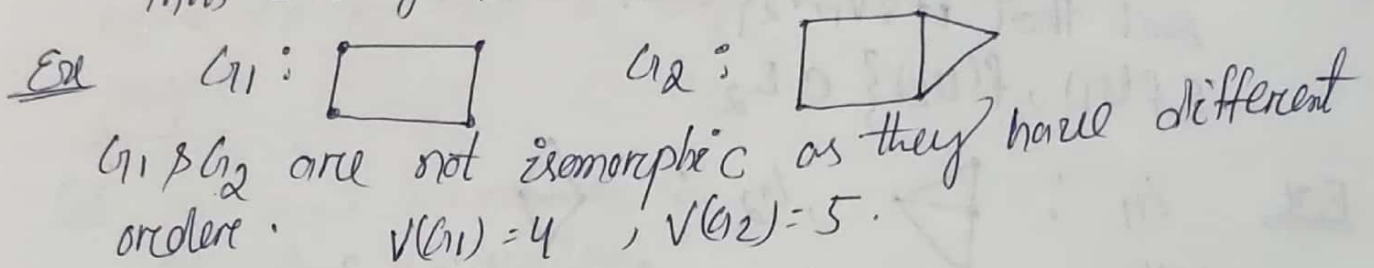 Ex G1 : G2 :
G1 & G2 are not isomorphic as they have different
order. V(G1) = 4 , V(G2) = 5.